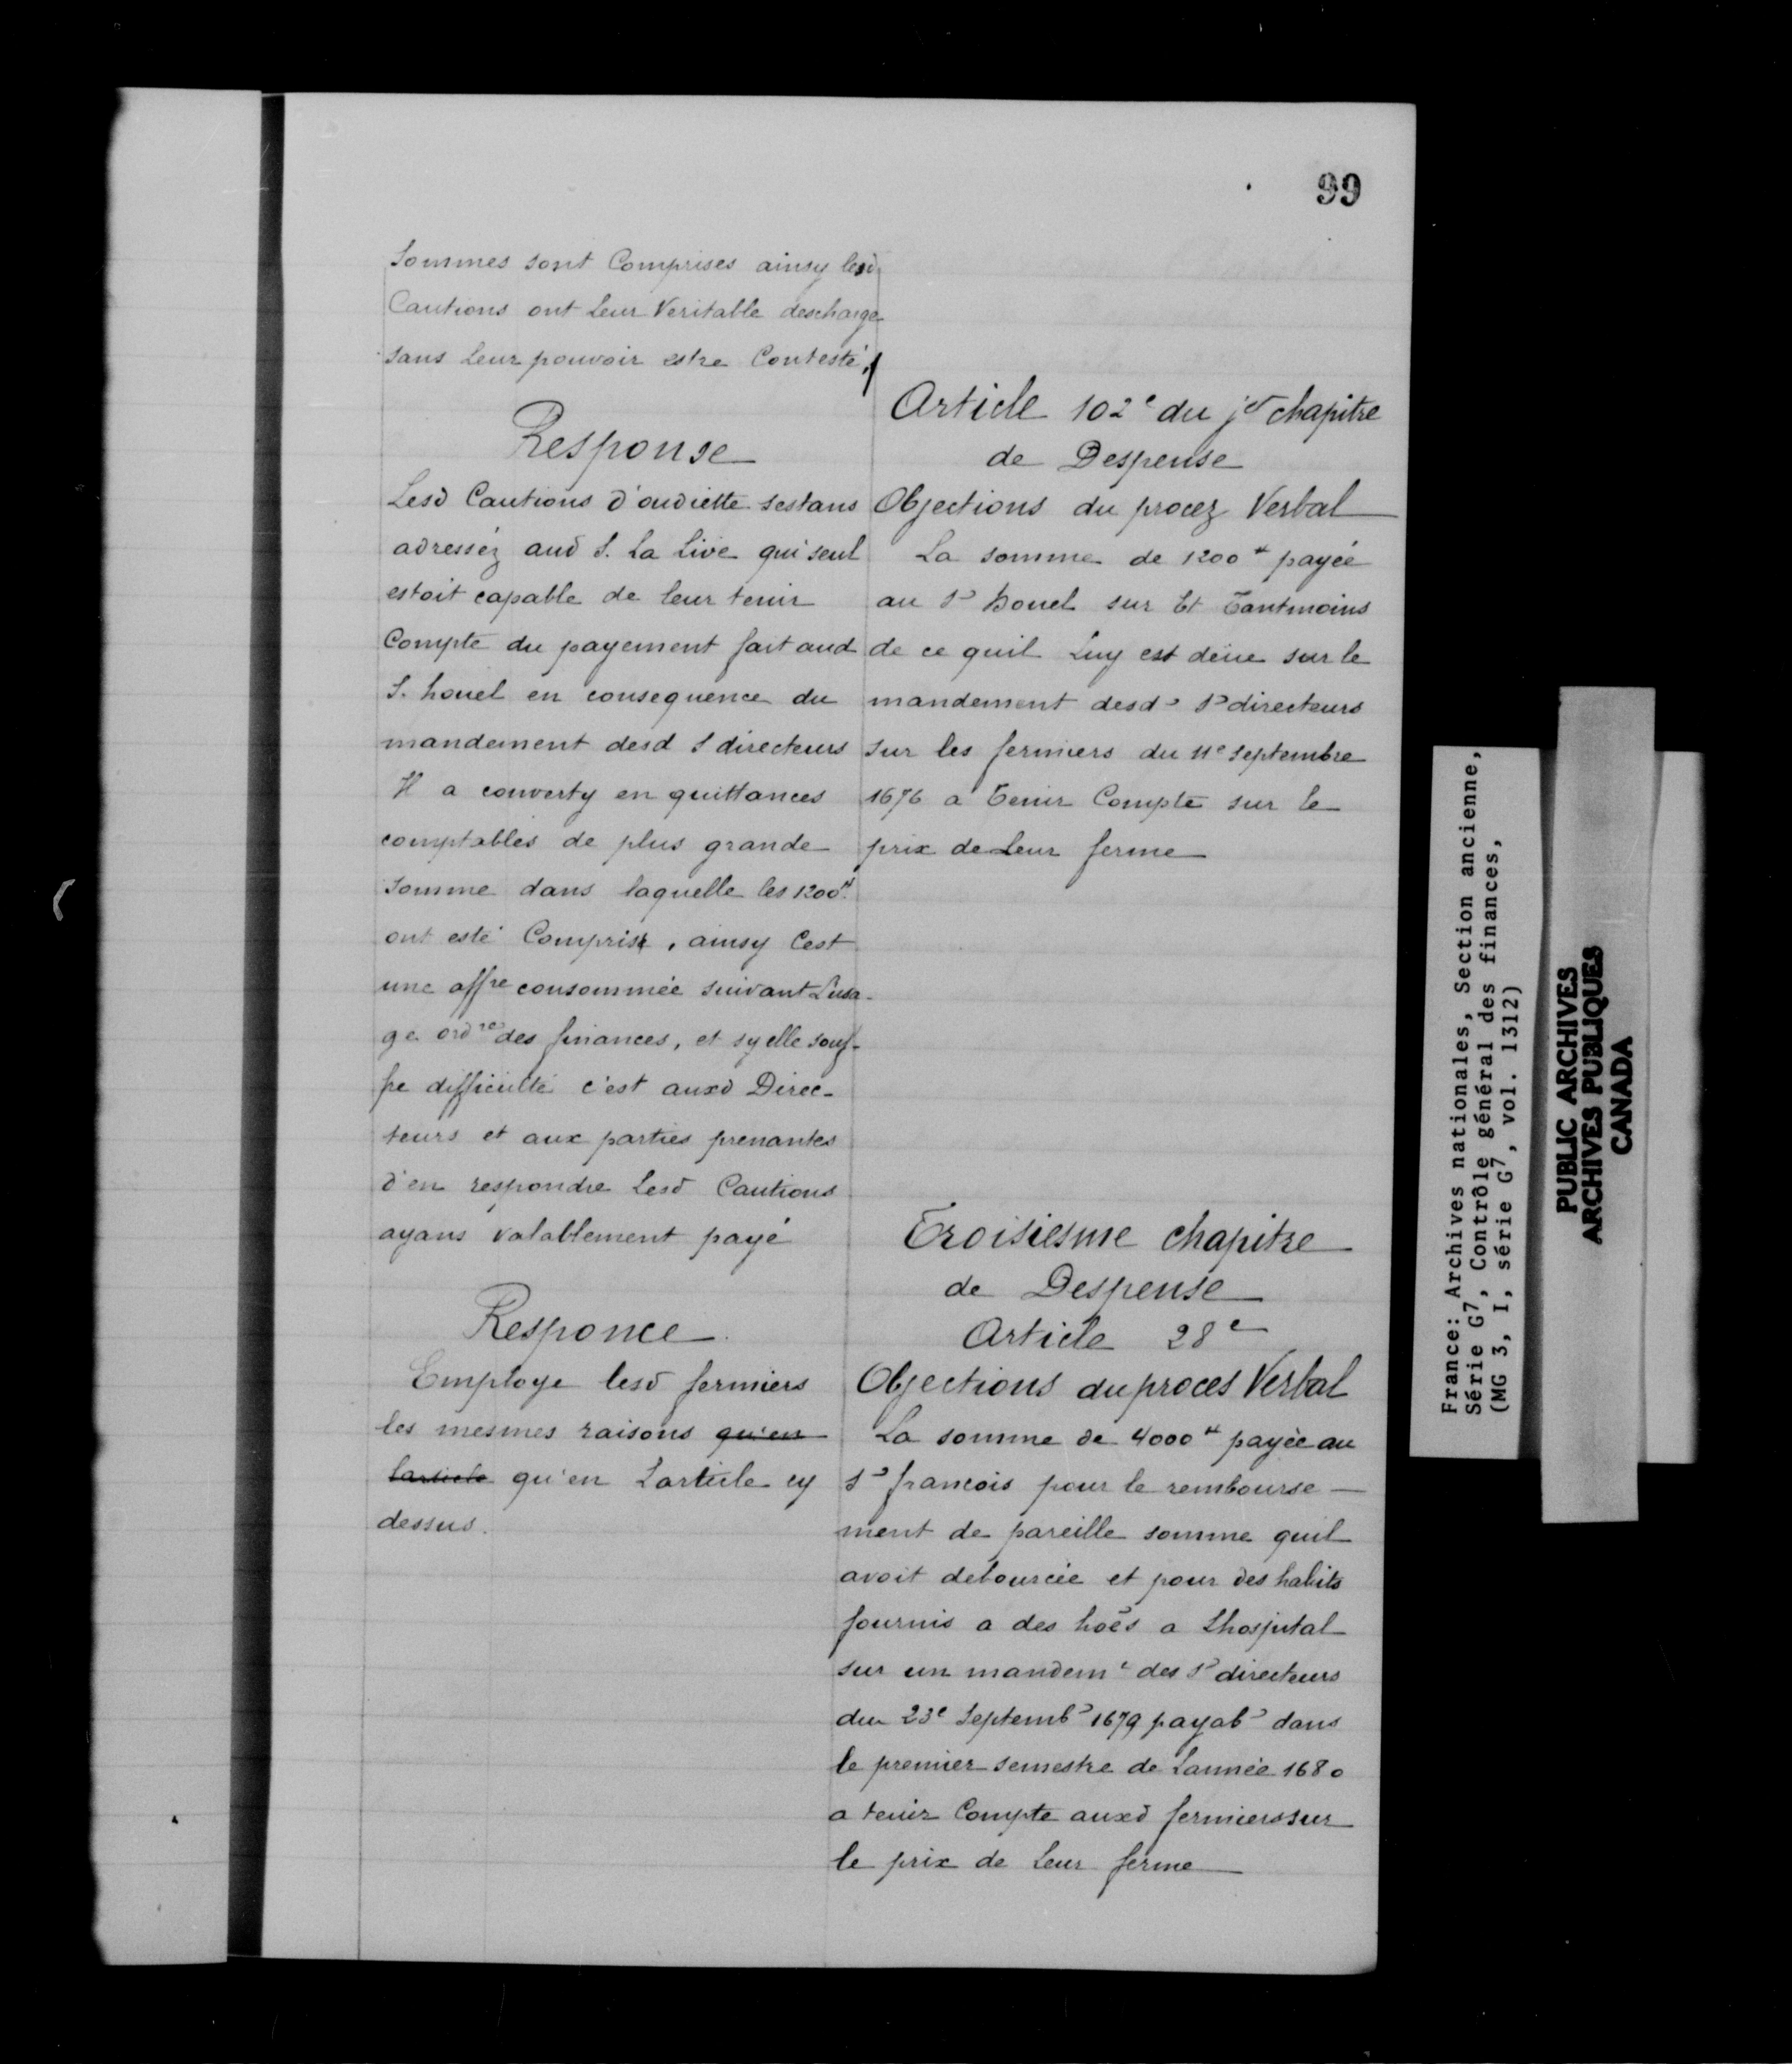 99
Sommes sont Comprises ainsy lesd
Cautions ont Leur Veritable descharge
sans Leur pouvoir estre Contesté,
Response
Lesd Cautions d'oudiette sestans
adresséz aud S. La Live qui seul
estoit capable de leur tenir
Compte du payement fait aud
S. houel en consequence du
mandement desd S directeurs
Il a converty en quittances
comptables de plus grande
Somme dans laquelle les 1200ᵗᵗ
ont esté Compris, ainsy Cest
une affʳᵉ consommée suivant Lusa-
ge ordʳᵉ des finances, et sy elle souf-
fre difficulté c'est auxd Direc-
teurs et aux parties prenantes
d'en respondre Lesd Cautions
ayans valablement payé
Responce
Employe lesd fermiers
les mesmes raisons qu'en
larticle qu'en Larticle cy
dessus.
Article 102ᵉ du jᵉʳ chapitre
de Despense
Objections du procez Verbal
La somme de 1200ᵗᵗ payée
au Sʳ houel sur Et Tantmoins
de ce quil Luy est deüe sur le
mandement desdˢ Sʳ directeurs
sur les fermiers du 11ᵉ septembre
1676 a Tenir Compte sur le
prix de Leur ferme
Troisiesme chapitre
de Despense
Article 28ᵉ
Objections du proces Verbal
La somme de 4000ᵗᵗ payée au
Sʳ francois pour le rembourse-
ment de pareille somme quil
avoit deboursée et pour des habits
fournis a des hoẽs a Lhospital
sur un mandemᵗ des Sʳ directeurs
du 23ᵉ Septembʳ 1679 payabˡ dans
le premier semestre de Lannée 1680
a tenir Compte auxd fermiers sur
le prix de Leur ferme
France: Archives nationales, Section ancienne,
Série G7, Contrôle général des finances,
(MG 3, I, série G7, vol. 1312)
PUBLIC ARCHIVES
ARCHIVES PUBLIQUES
CANADA